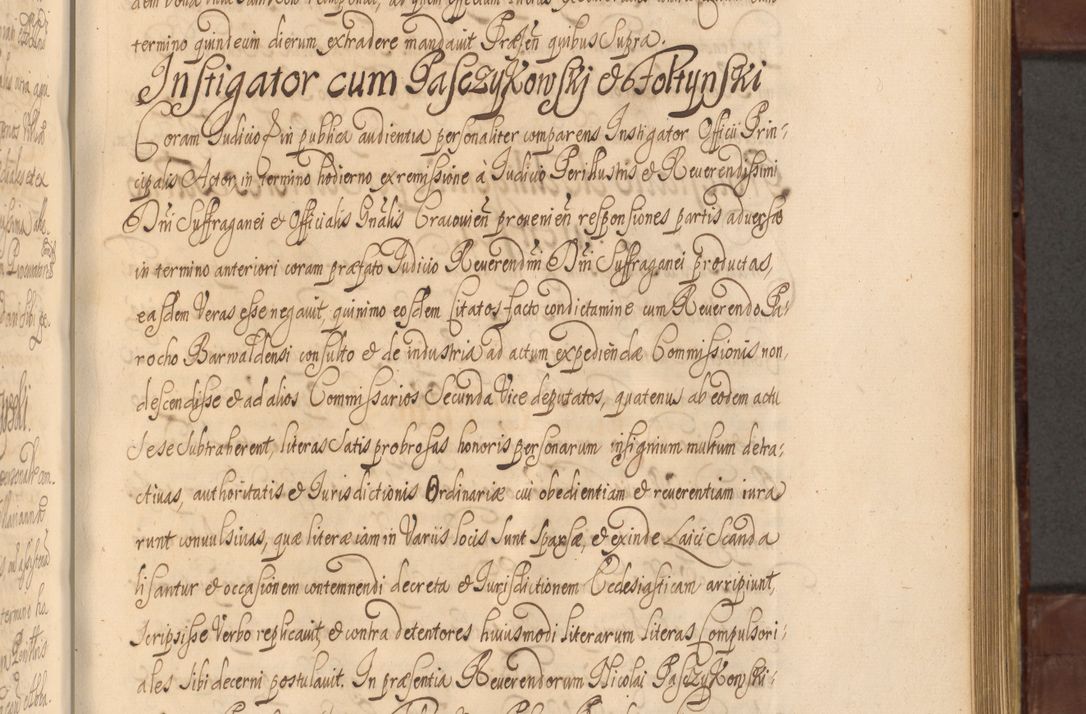 termino quindecim dierum extradere mandavit Præsẽn quibus Supra.
Instigator cum Pasczykowskj et Foltynski
Coram Iudicio et in publica audientia personaliter comparens Instigator Officii Prin-
cipalis Actor, in termino hodierno ex remissione à Iudicio Perillustris et Reverendissimi
Dñi Suffraganei et Officialis Gñalis Cracovień provenień responsiones partis adversæ
in termino anteriori coram præfato Iudicio Reverendm̃i Dñi Suffraganei productas,
easdem Veras esse negavit, quinimo eosdem Citatos facto condictamine cum Reverendo Pa-
rocho Barwaldensi consulto et de industria ad actum expediendæ Commissionis non
descendisse et ad alios Commissarios Secunda Vice deputatos, quatenus ab eodem actu
sese subtraherent, literas satis probrosas honoris personarum insignium multum detra-
ctivas, authoritatis et Iurisdictionis Ordinariæ cui obedientiam et reverentiam iura
runt convulsivas, quæ literæ iam in Variis locis sunt sparsæ, et exinde Laici Scanda
lisantur et occasionem contemnendi decreta et Iurisdictionem Ecclesiasticam arripiunt,
scripsisse Verbo replicavit, et contra detentores huiusmodi literarum literas Compulsori-
ales sibi decerni postulavit. In præsentia Reverendorum Nicolai Pasczykowski